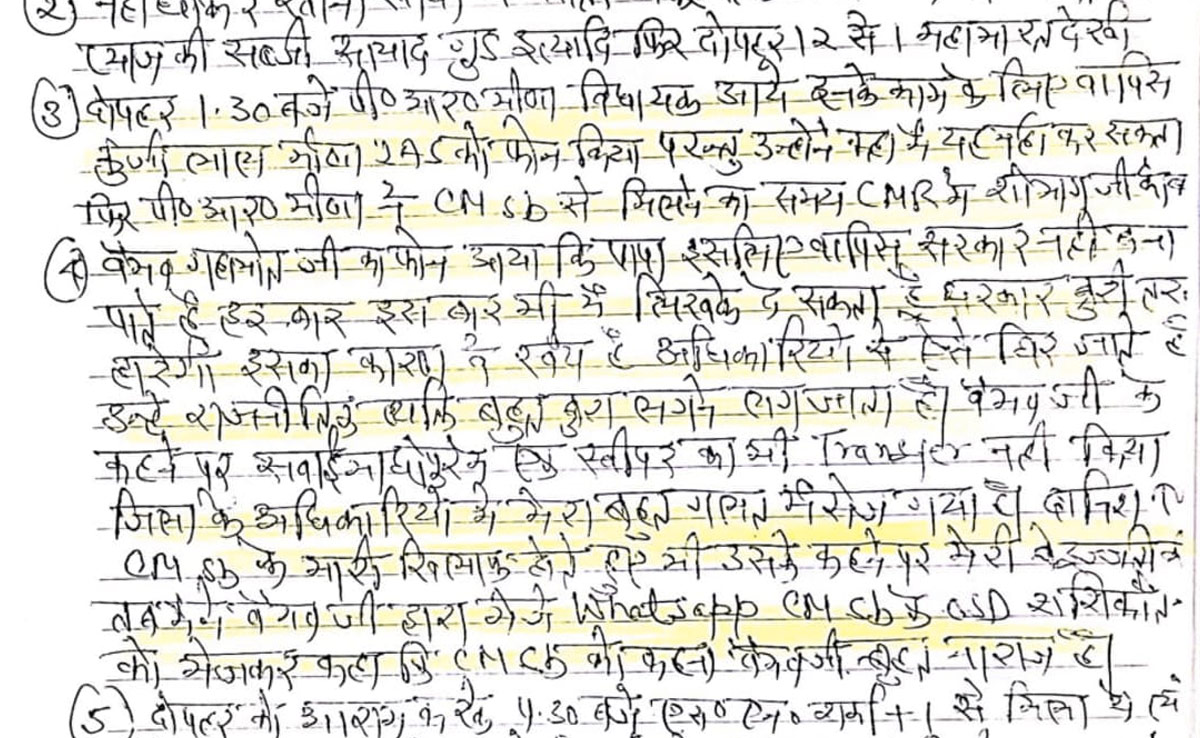 ② नहा धोकर
प्याज की सब्जी सायाद गुड इत्यादि फिर दोपहर 12 से 1 महाभारत देखी
③ दोपहर 1.30 बजे पी० आर० मीणा विधायक आये इनके काम के लिए वापिस
कुंजी लाल मीणा IAS को फोन किया परन्तु उन्होने कहा मैं यह नही कर सकता
फिर पी० आर० मीणा ने CM sb से मिलने का समय CMR में शोभाग जी
④ वैभव गहलोत जी का फोन आया कि पापा इसलिए वापिस सरकार नही बना
पाते है हर बार इस बार भी मैं लिखके दे सकता हूँ सरकार बुरी तरह
हारेगी इसका कारण वे स्वंय है अधिकारियो से ऐसे घिर जाते है
उन्हे राजनीतिक व्यक्ति बहुत बुरा लगने लग जाता है। वैभव जी के
कहने पर सवाईमाधोपुर के एक स्वीपर का भी Transfer नही किया
जिला के अधिकारियो मे मेरा बहुत गलत मैसेज गया है। दानिश
CM sb के भारी खिलाफ होते हुए भी उसके कहने पर मेरी बेइज्जती
तब मैने वैभव जी द्वारा भेजे Whatsapp CM sb के OSD शशिकांत
को भेजकर कहा कि CM sb को कहना वैभवजी बहुत नाराज है।
⑤ दोपहर को आराम करके 4.30 बजे एस० एन० शर्मा + 1 से मिला